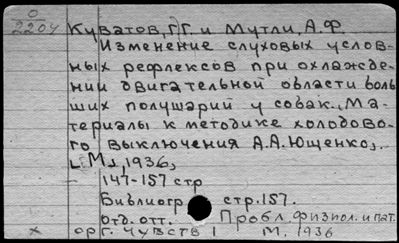 О
2204 Куватов, Г.Г. и Мутли, А.Ф.
Изменение слуховых услов-
ных рефлексов при охлажде-
нии двигательной области боль
ших полушарий у собак., Ма-
териалы к методике холодово-
го выключения А.А.Ющенко,.
1936,
147-157 стр
Библиогр стр.157.
отд. отт. Пробл. физиол. и пат.
х орг. чувств 1 М. 1936